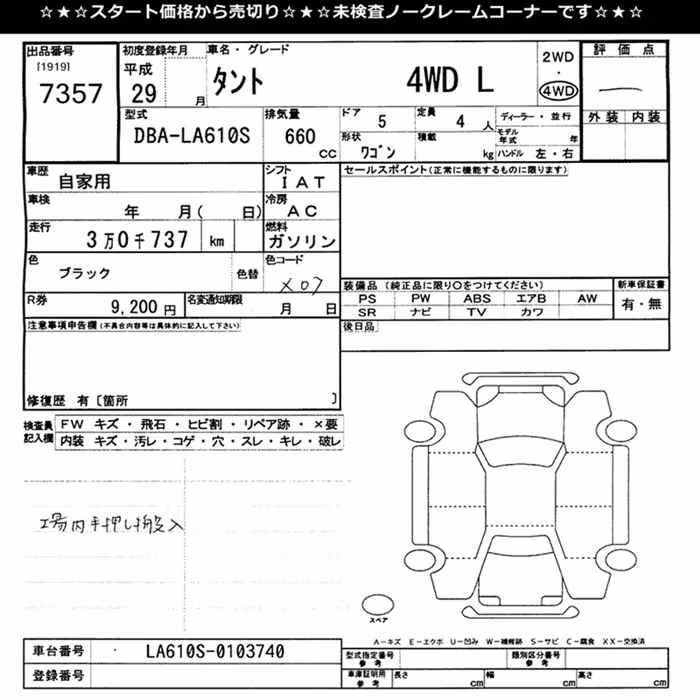 ☆★☆★スタート価格から売切り☆★☆★未検査ノークレームコーナーです☆★☆★
出品番号 初度登録年月 車名・グレード 2WD 評価点
[1919] 平成 ・
7357 29 月 タント 4WD L 4WD
型式 排気量 ドア 定員 ディーラー・並行 外装 内装
DBA-LA610S 660 CC 5 4 人 モデル年式 年
形状 積載
ワゴン kg ハンドル 左・右
車歴 自家用 シフト IAT セールスポイント(正常に機能するものに限ります)
車検 年 月( 日) 冷房 AC
走行 3万0千737 km 燃料 ガソリン
色 ブラック 色替 色コード X07
装備品 (純正品に限り○をつけてください) 新車保証書
PS PW ABS エアB AW 有・無
R券 9,200 円 名変通知期限 月 日 SR ナビ TV カワ
注意事項申告欄(不具合内容等は具体的に記入して下さい) 後日品
修復歴 有〔箇所 〕
検査員記入欄 FW キズ・飛石・ヒビ割・リペア跡・×要
内装 キズ・汚レ・コゲ・穴・スレ・キレ・破レ
場内手押し搬入
スペア
A-キズ E-エクボ U-凹み W-補修跡 S-サビ C-腐食 XX-交換済
車台番号 LA610S-0103740 型式指定番号 参考 類別区分番号 参考
登録番号 車庫証明用 参考 長さ cm 幅 cm 高さ cm